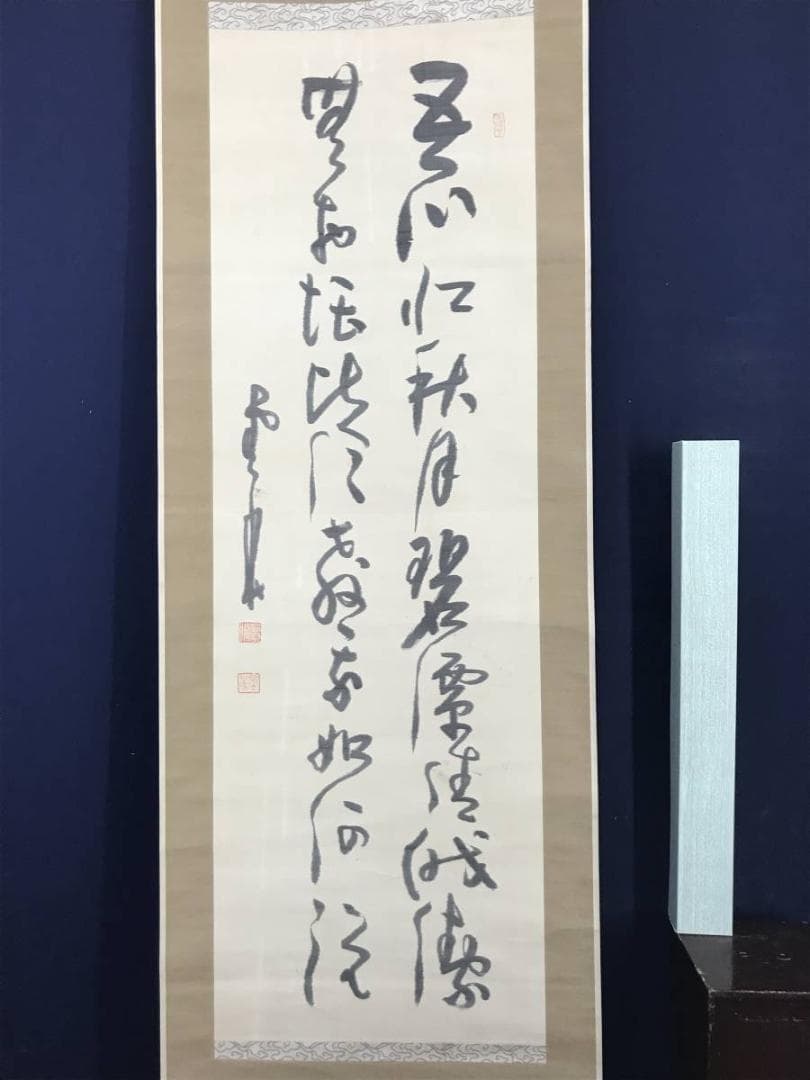 吾心似秋月碧潭清皎潔
無物堪比倫教我如何説